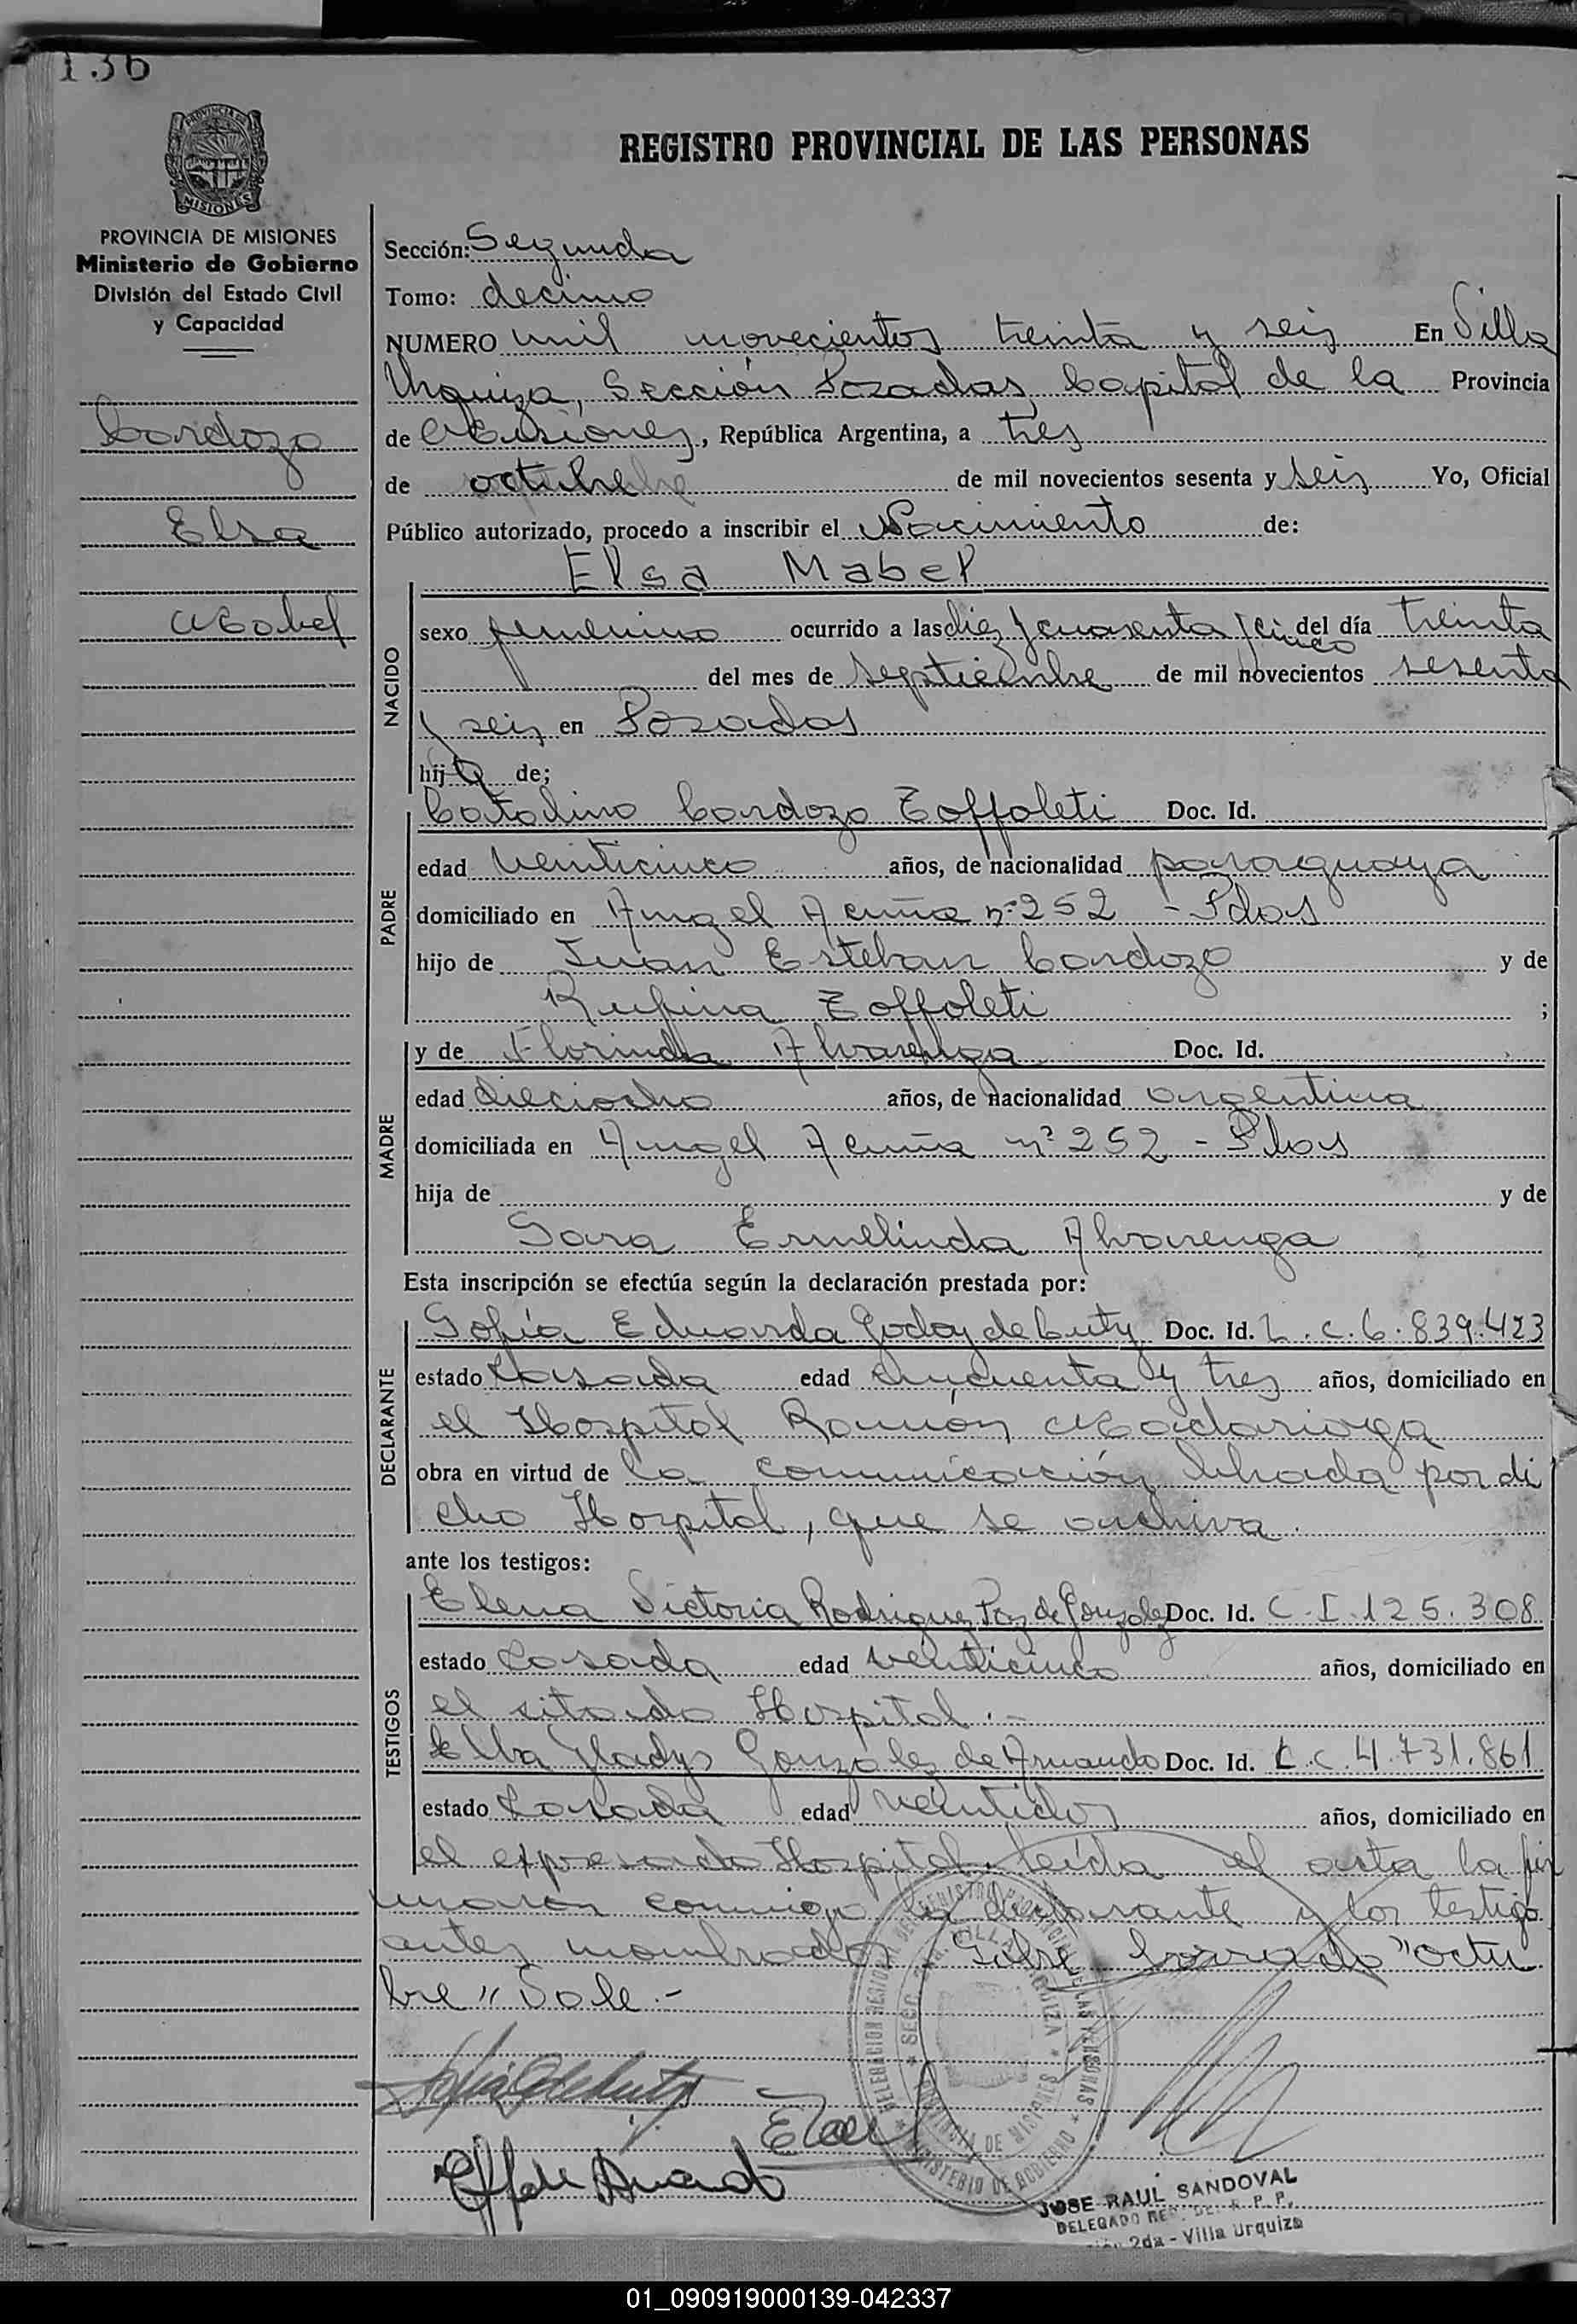 136
PROVINCIA DE
MISIONES
REGISTRO PROVINCIAL DE LAS PERSONAS
PROVINCIA DE MISIONES
Ministerio de Gobierno
División del Estado Civil
y Capacidad
Cardozo
Elsa
Mabel
Sección: Segunda
Tomo: decimo
NUMERO mil novecientos treinta y seis En Villa
Urquiza, Sección Posadas, Capital de la Provincia
de Misiones, República Argentina, a tres
de octubre de mil novecientos sesenta y seis Yo, Oficial
Público autorizado, procedo a inscribir el Nacimiento de:
Elsa Mabel
NACIDO
sexo femenino ocurrido a las diez y cuarenta y cinco del día treinta
del mes de septiembre de mil novecientos sesenta
y seis en Posadas
hija de;
PADRE
Catalino Cardozo Toffoleti Doc. Id.
edad veinticinco años, de nacionalidad paraguaya
domiciliado en Angel Acuña nº 252 - Pdas
hijo de Juan Esteban Cardozo y de
Rufina Toffoleti ;
MADRE
y de Florinda Alvarenga Doc. Id.
edad dieciocho años, de nacionalidad argentina
domiciliada en Angel Acuña nº 252 - Pdas
hija de y de
Sara Ermelinda Alvarenga
Esta inscripción se efectúa según la declaración prestada por:
DECLARANTE
Sofía Eduarda Godoy de Cuty Doc. Id. L.C. 6.839.423
estado casada edad cincuenta y tres años, domiciliado en
el Hospital Ramón Madariaga
obra en virtud de la comunicación librada por di
cho Hospital, que se archiva.
ante los testigos:
TESTIGOS
Elena Victoria Rodriguez Paz de Gonzalez Doc. Id. C.I. 125.308
estado casada edad veinticinco años, domiciliado en
el sitado Hospital.-
Elba Gladys Gonzales de Amando Doc. Id. L.C. 4.731.861
estado casada edad veintidos años, domiciliado en
el expresado Hospital. leída el acta la fir
maron conmigo la declarante y los testigo
antes nombrados. Sobre borrado "octu
bre" Vale.-
DELEGACION REGIONAL DEL REGISTRO PROVINCIAL DE LAS PERSONAS
SECC. 2da. VILLA URQUIZA
PROVINCIA DE MISIONES
MINISTERIO DE GOBIERNO
JOSE RAUL SANDOVAL
DELEGADO REG. DEL R. P. P.
2da - Villa Urquiza
01_090919000139-042337